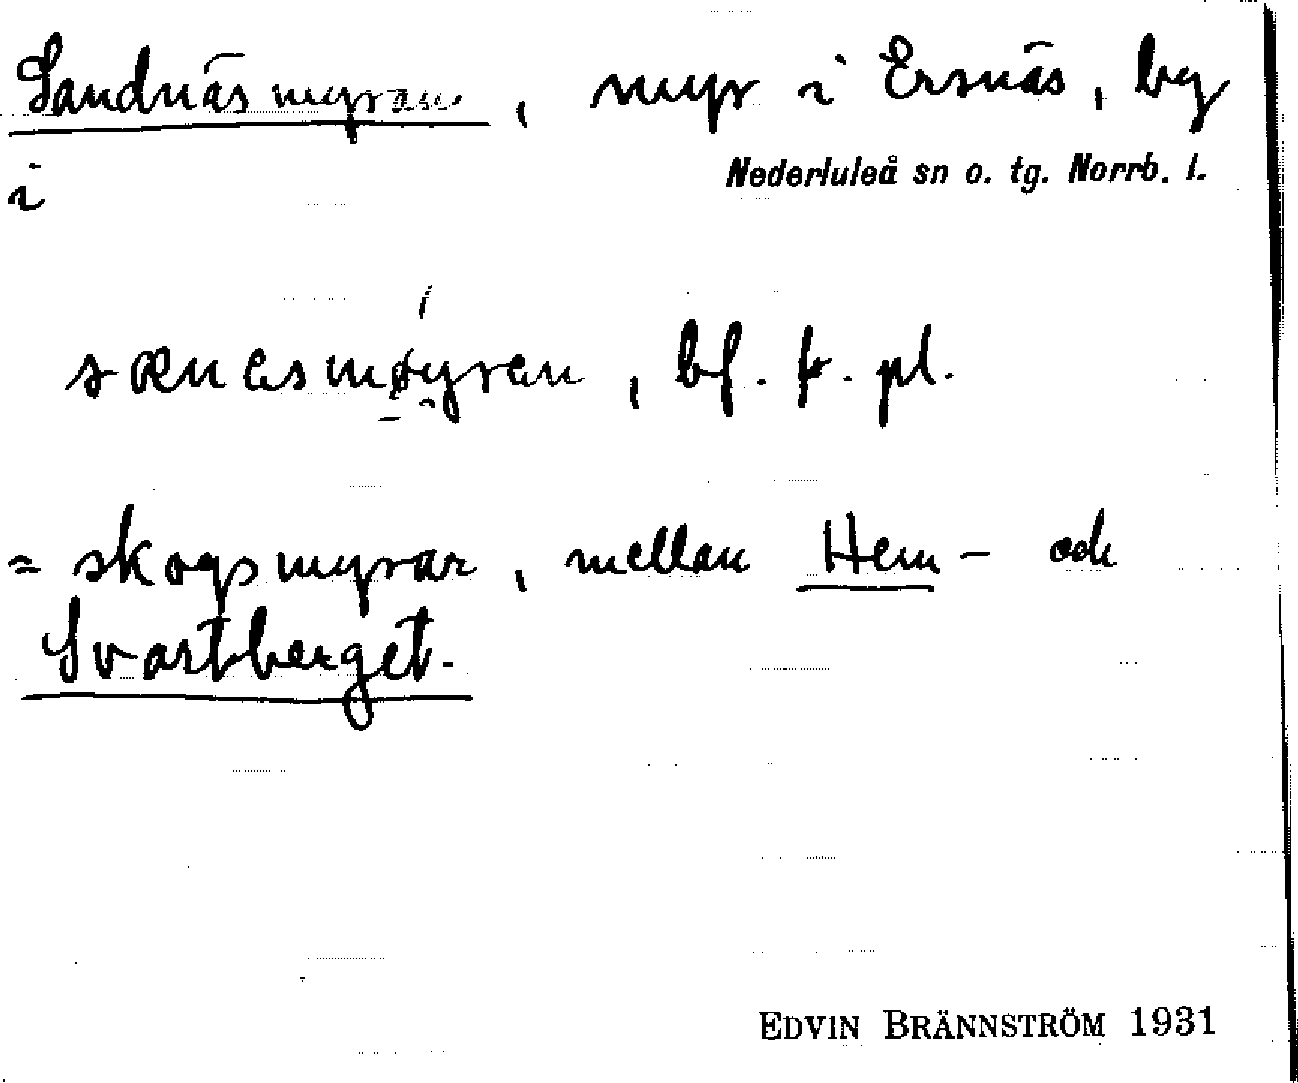 Sandnäsmyran, myr i Ersnäs, by
i Nederluleå sn o. tg. Norrb. l.
bf. f. pl.
= skogsmyrar, mellan Hem- och
Svartberget.
EDVIN BRÄNNSTRÖM 1931